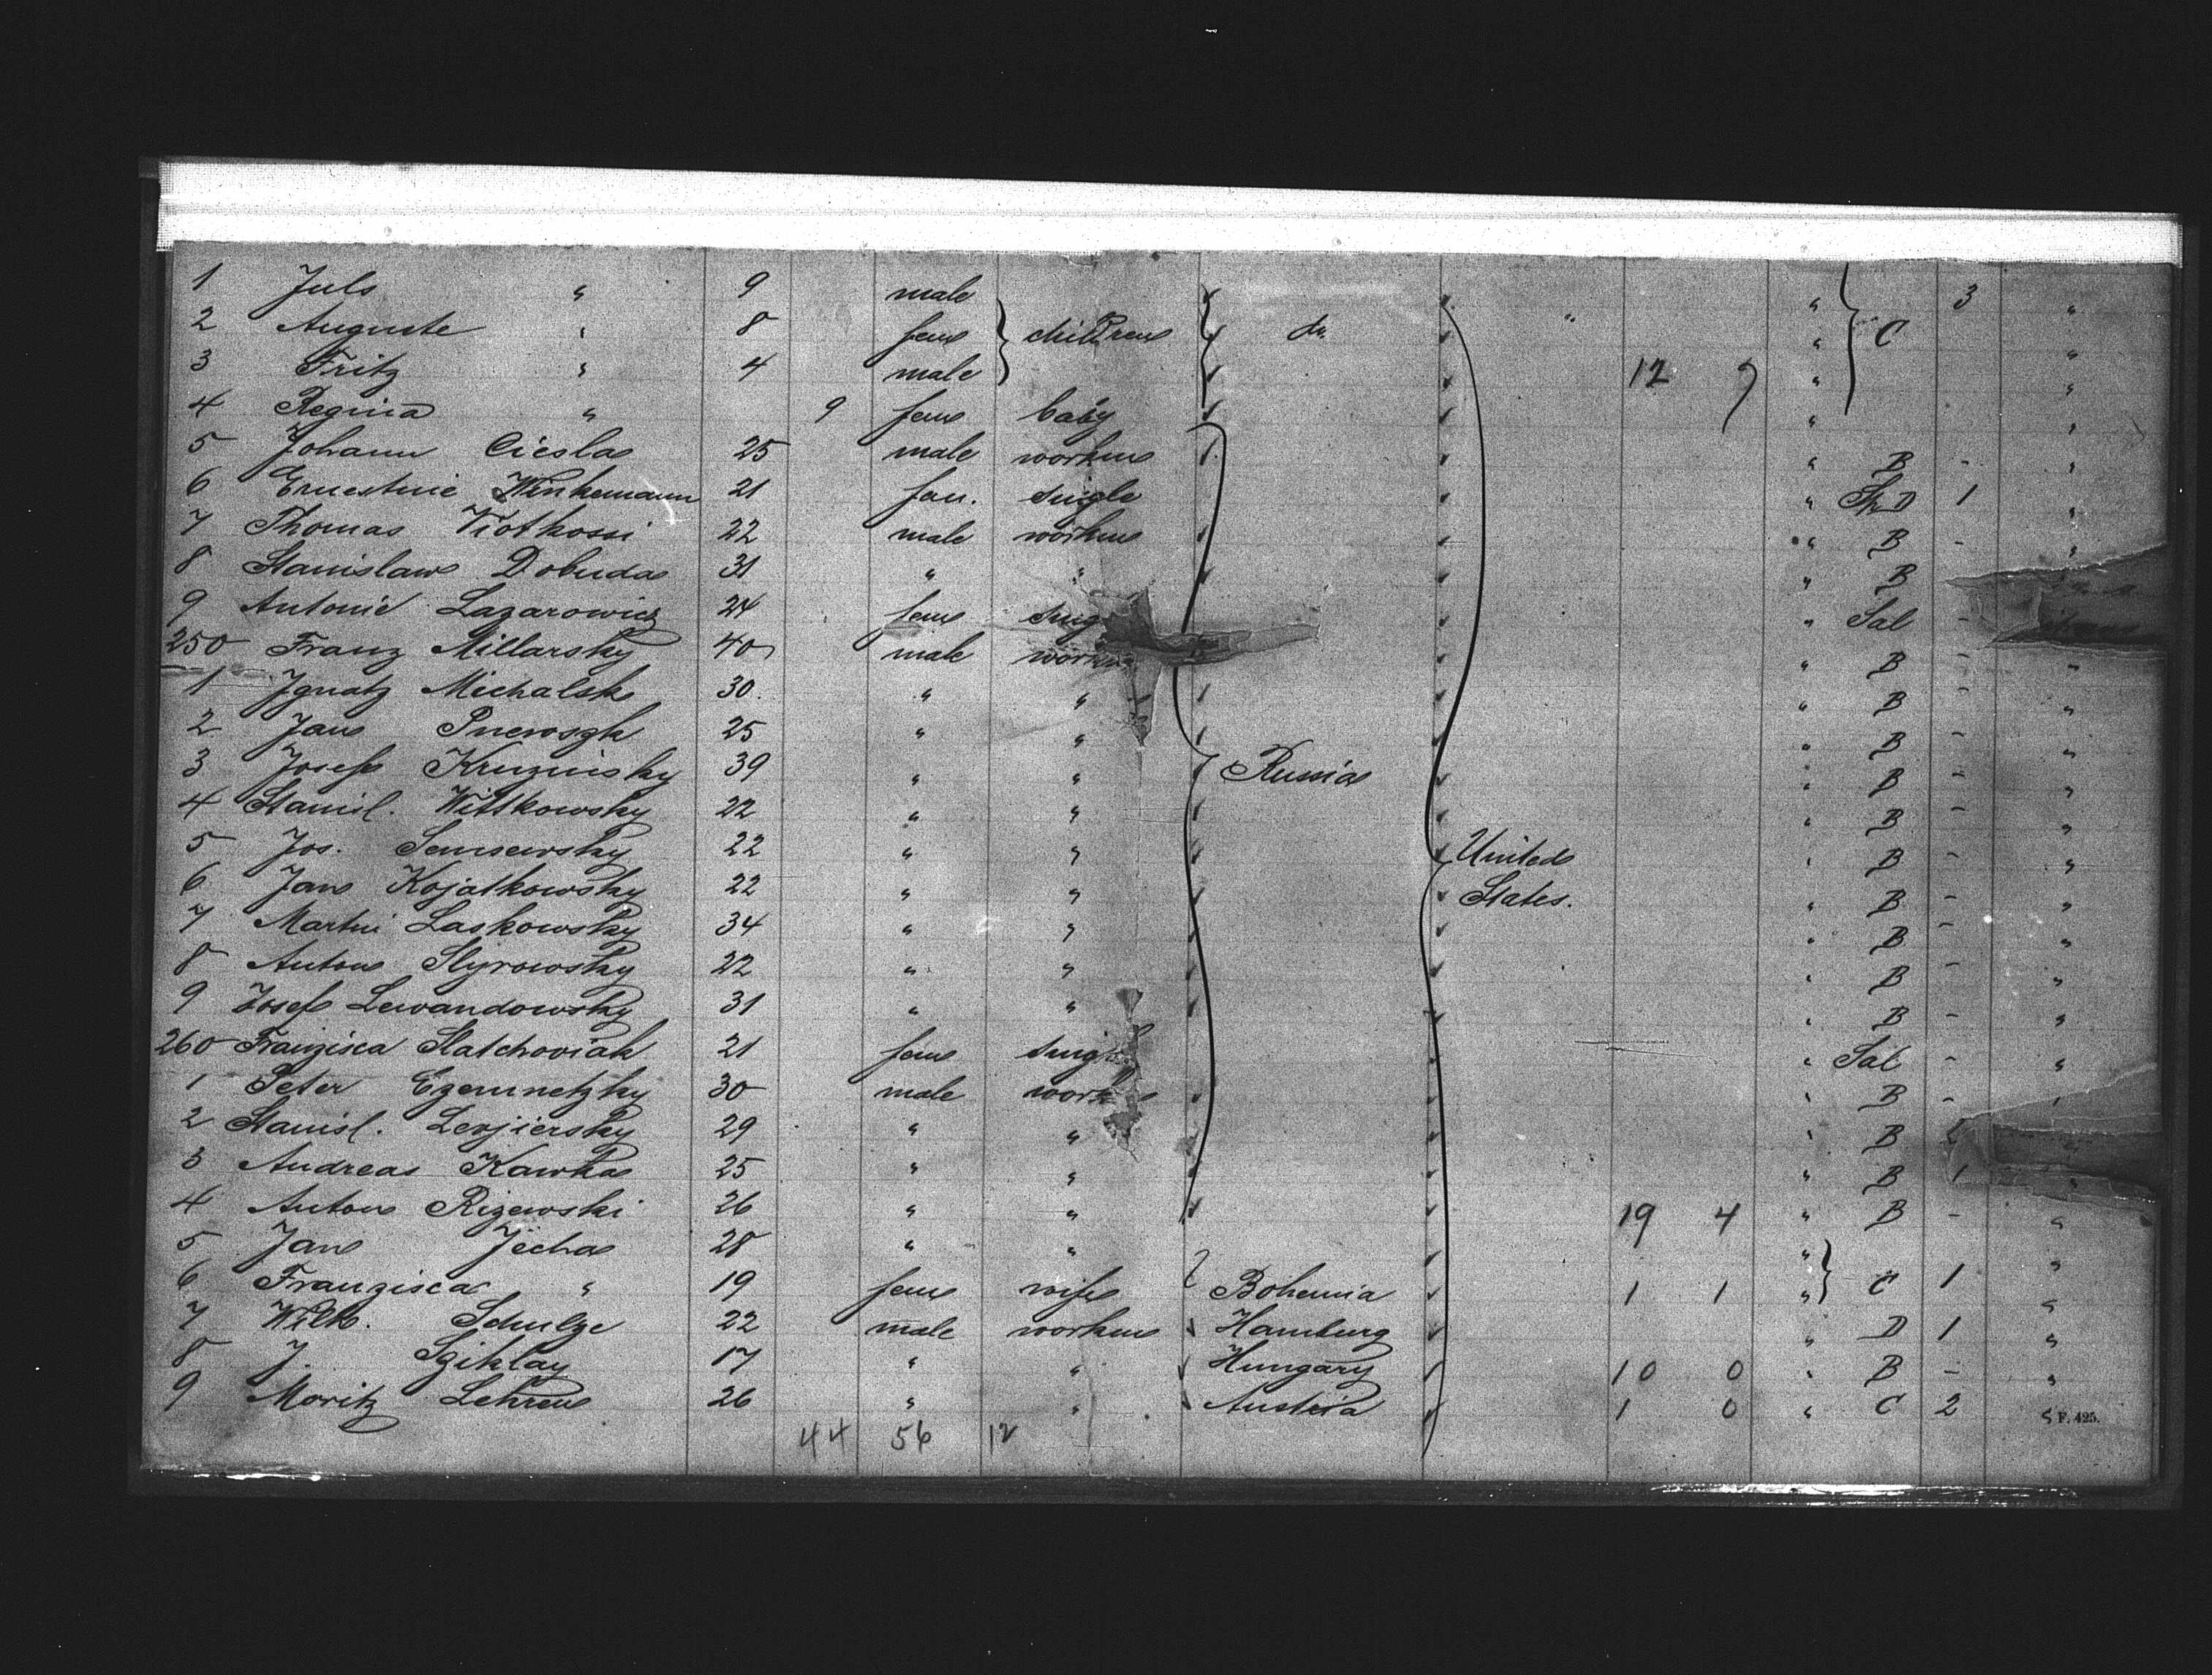 1 Juls " 9 male " 3 "
2 Auguste " 8 fem children do. " " C "
3 Fritz " 4 male 12 7 " "
4 Regina " 9 fem baby " "
5 Johann Ciesla 25 male workm " B - "
6 Ernestine Winkemann 21 fem. single " D 1 "
7 Thomas 22 male workm " B - "
8 Stanislaw Dobuda 31 " " " B
9 Antonie Lazarowicz 24 fem sing " Sal -
250 Franz Millarsky 40 male workm " B - "
1 Ignatz Michalsk 30. " " " B - "
2 Jan 25 " " " B - "
3 Josef Kruzinsky 39 " " Russia " B - "
4 Stanisl. Wittkowsky 22 " " " B - "
5 Jos. 22 " " United " B - "
6 Jan Kojatkowsky 22 " " States. " B - "
7 Martin Laskowsky 34 " " " B - "
8 Anton 22 " " " B - "
9 Josef Lewandowsky 31 " " " B - "
260 Franzisca Slatchoviak 21 fem singl " Sal - "
1 Peter 30 male work " B -
2 Stanisl. 29 " " " B
3 Andreas Kawka 25 " " " B 1 "
4 Anton Rizewski 26 " " 19 4 " B - "
5 Jan Jecha 28 " " " "
6 Franzisca " 19 fem wife Bohemia 1 1 " C 1 "
7 Wilh. Schulze 22 male workm Hamburg " D 1 "
8 J. Sziklay 17 " " Hungary 10 0 " B - "
9 Moritz Lehren 26 " " Austria 1 0 " C 2 "
F. 425.
44 56 12